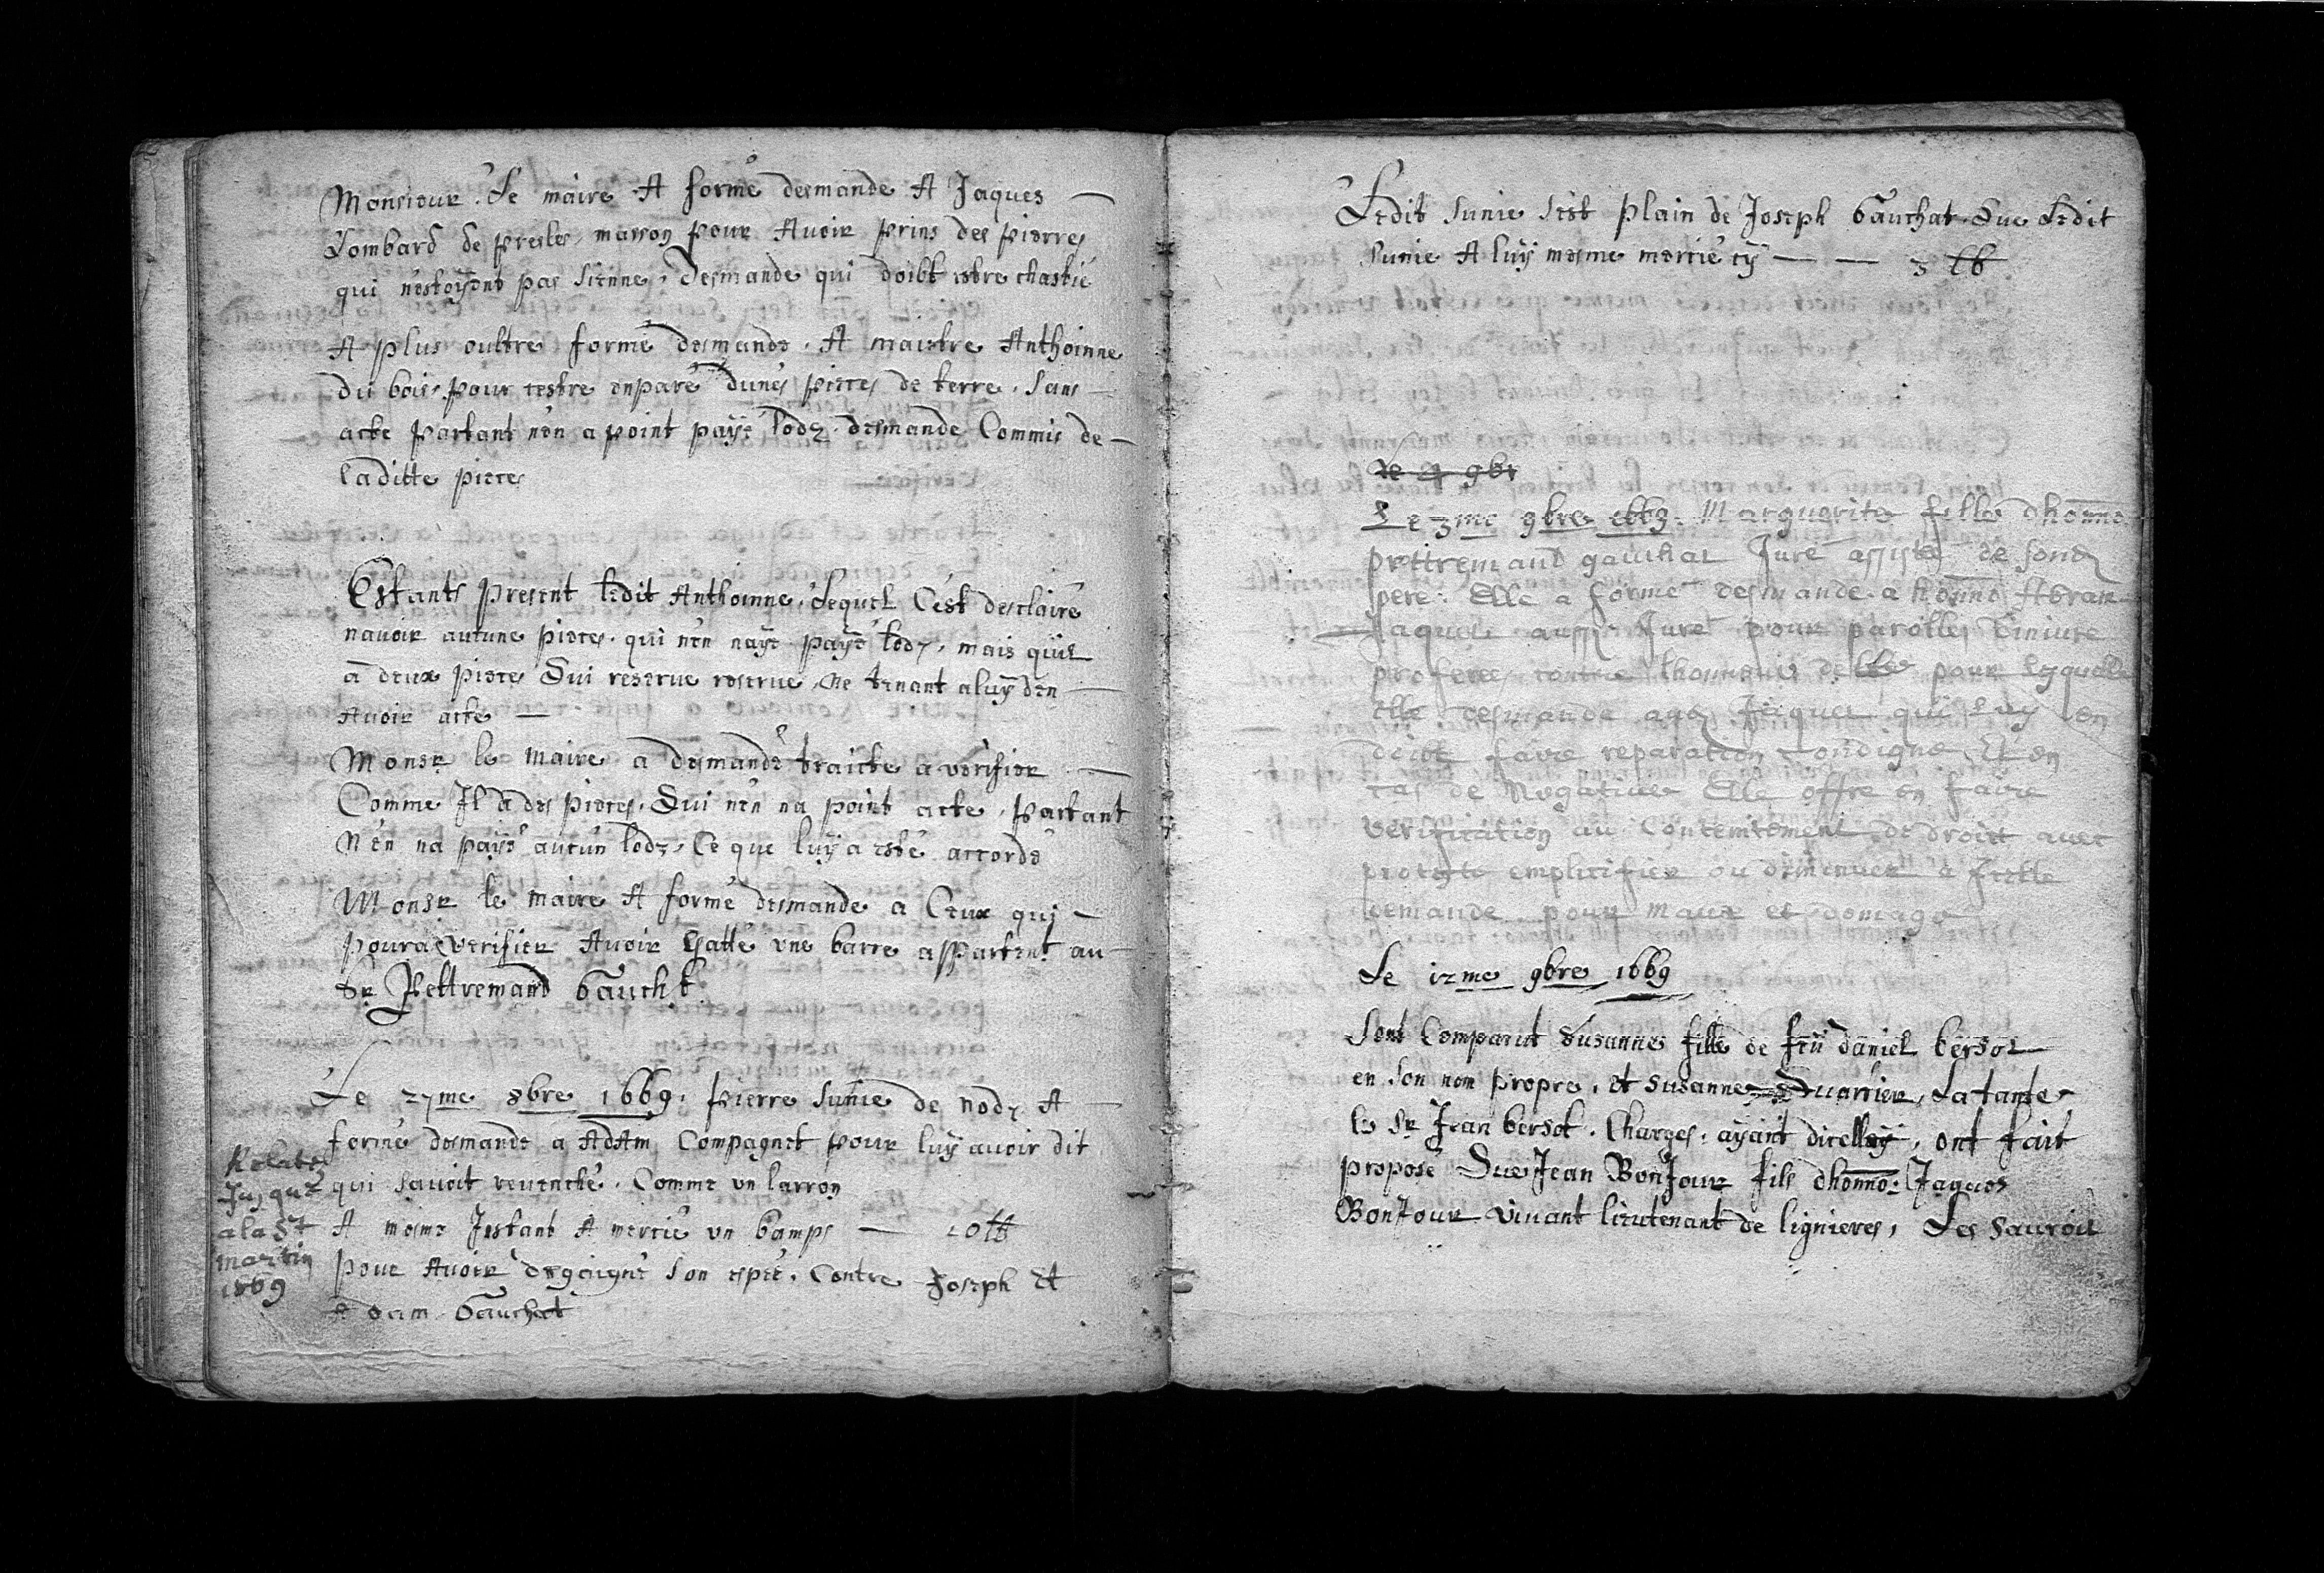 Monsieur Le maire A formé desmande A Jaques —
Lombard de presles, masson pour Auoir prins des pierres
qui nestoyent pas sienne, Desmande qui doibt estre chastié
A plus oultre formé desmande A maistre Anthoinne
du bois pour estre enparé dunes pieces de terre, sans —
acte partant nen a point payé lodz. desmande Commis de —
laditte pieces
Estants present ledit Anthoinne, Lequel C'est desclairé
nauoir aucune pieces qui nen naye payé lodz, mais quil
a deux pieces Qui reserue reserue, ne tenant a luy den —
Auoir acte —
Monsr le maire a desmandé traicte a verifier —
Comme Il a des pieces, Qui nen na point acte, partant
Nen na payé aucun lodz, Ce que luy a esté accordé
Monsr le maire A formé desmande a Ceux qui —
poura verifier Auoir gatté une barre appartent au —
Sr Pettremand Gauch t
Le 27me 8bre 1669. pierre Sunie de nodz A —
formé desmande a AdAm Compagnet pour luy auoir dit
qui sauoit reuenché, Comme un larron
A mesme Jestant A mercié un bamps — 10 lb
pour Auoir desgaigné son espée, Contre Joseph et
Adam Gauchat
Relaté
Jusque
a la St
martin
1669
Ledit Sunie sest plain de Joseph Gauchat. Que Ledit
Sunie A luy mesme mercié cy — — 3 lb
le 4 9br
Le 3me 9bre 1669. Marguerite fille dhonno
prettremand gauchat Juré assistée de sondz
pere. Elle a formé desmande a honno Abram
Jaques aussy Juré pour parolles Diniure
proferées contre lhonneur delle pour lesquelle
elle desmande audz Jaques quil luy en
doibt faire reparation condigne, Et en
cas de Negatiue Elle offre en faire
Verification au Contentement de droict auec
proteste emplicifier ou diminuer à Jcelle
demande pour maux et domage
Le 12me 9bre 1669
Sont Comparut Susannes fille de feu daniel bersot
en son nom propre, et Susanne Quarrier, La tante
le Sr Jean bersot. Charges, ayant dicelley, ont fait
proposé Que Jean BonJour fils dhonno: Jaques
BonJour viuant lieutenant de lignieres, Les sauroit